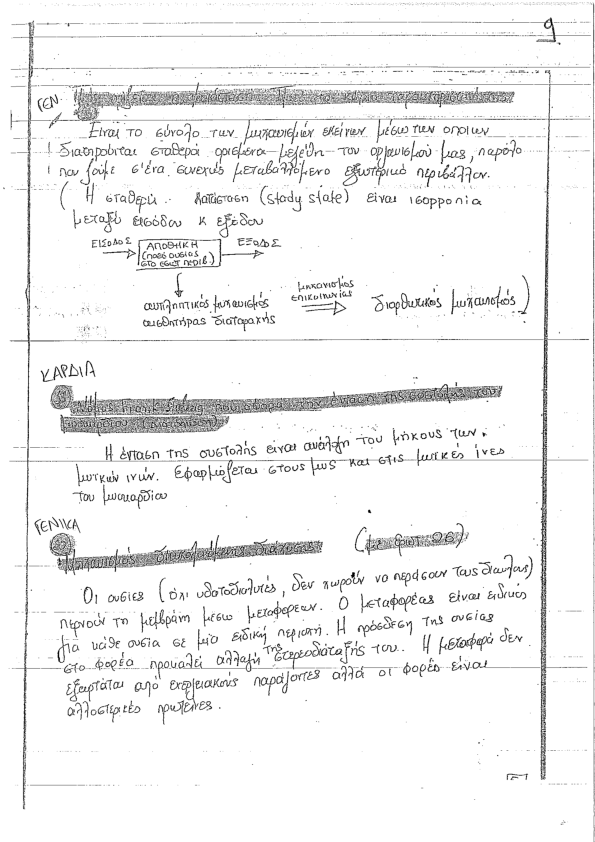 9
ΓΕΝ.
Είναι το σύνολο των μηχανισμών εκείνων μέσω των οποίων
διατηρούνται σταθερά ορισμένα μεγέθη του οργανισμού μας, παρόλο
που ζούμε σ'ένα συνεχώς μεταβαλλόμενο εξωτερικό περιβάλλον.
(Η σταθερή κατάσταση (stady state) είναι ισορροπία
μεταξύ εισόδου κ εξόδου
ΕΙΣΟΔΟΣ ΑΠΟΘΗΚΗ ΕΞΟΔΟΣ
(ποσό ουσίας
στο εσωτ περιβ.)
αντιληπτικός μηχανισμός
αισθητήρας διαταραχής
μηχανισμός
επικοινωνίας
διορθωτικός μηχανισμός)
ΚΑΡΔΙΑ
Νόμος Frank Starling που αφορά την ένταση της συστολής του
μυοκαρδίου (διατύπωση)
Η ένταση της συστολής είναι ανάλογη του μήκους των
μυικών ινών. Εφαρμόζεται στους μυς και στις μυικές ίνες
του μυοκαρδίου
ΓΕΝΙΚΑ
Μηχανισμός διευκολυόμενης διάχυσης (με φωτ 26)
Οι ουσίες (όχι υδατοδιαλυτές, δεν χωρούν να περάσουν τους διαύλους)
περνούν τη μεμβράνη μέσω μεταφορέων. Ο μεταφορέας είναι ειδικός
για κάθε ουσία σε μία ειδική περιοχή. Η πρόσδεση της ουσίας
στο φορέα προκαλεί αλλαγή της στερεοδιάταξής του. Η μεταφορά δεν
εξαρτάται από ενεργειακούς παράγοντες αλλά οι φορείς είναι
αλλοστερικές πρωτεΐνες.